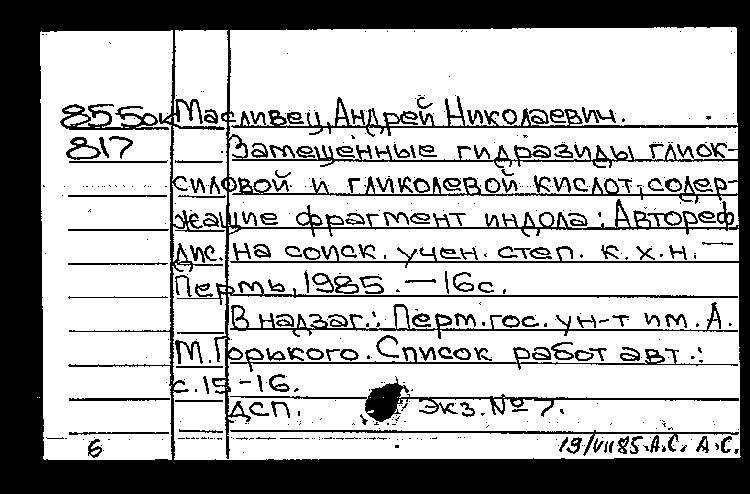 855ок Масливец, Андрей Николаевич.
817 Замещенные гидразиды глиок-
силовой и гликолевой кислот, содер-
жащие фрагмент индола: Автореф.
дис. на соиск. учен. степ. к.х.н. —
Пермь, 1985. — 16с.
В надзаг.: Перм. гос. ун-т им. А.
М. Горького. Список работ авт.:
с. 15-16.
ДСП. Экз. № 7.
6 19/VII 85. А.С. А.С.